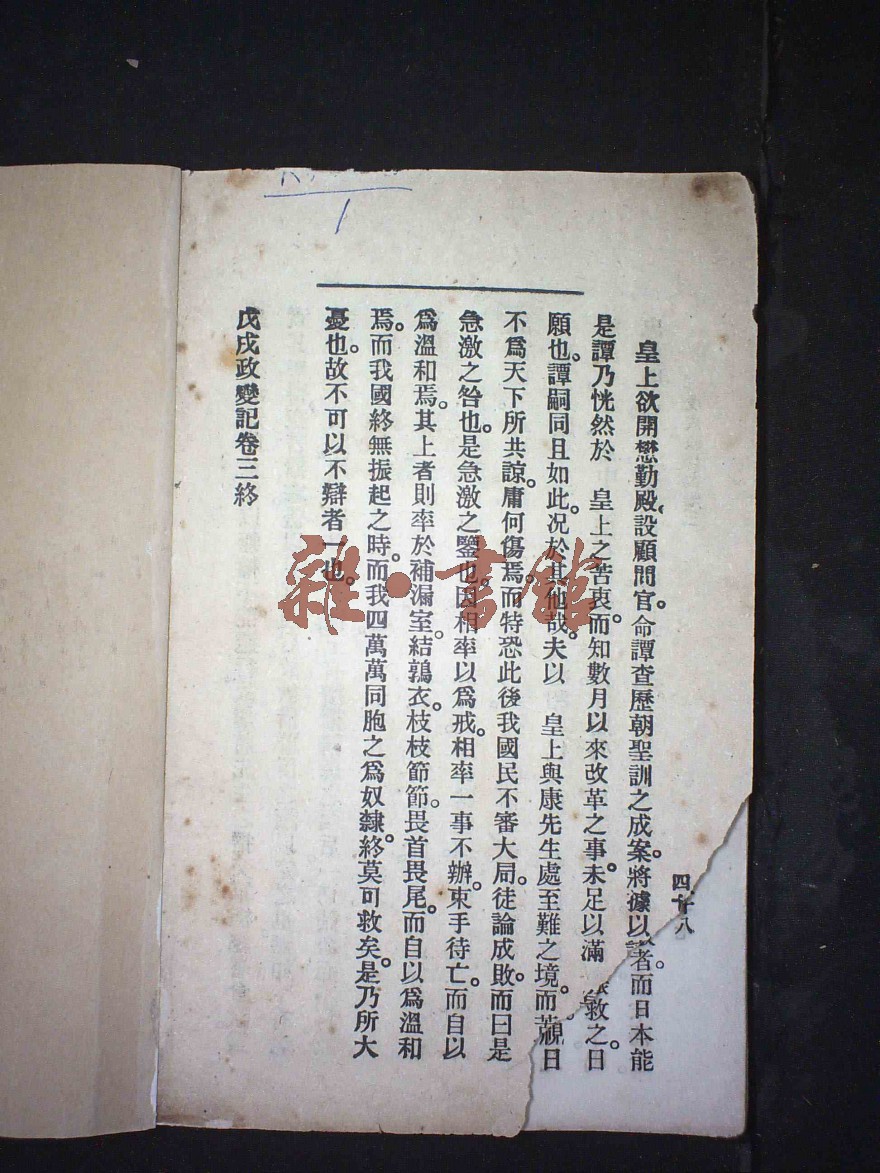 皇上欲開懋勤殿設顧問官。命譚查歷朝聖訓之成案。將據以者。而日本能
是譚乃恍然於　皇上之苦衷。而知數月以來改革之事。未足以滿　救之。日
願也。譚嗣同且如此。况於其他哉。夫以　皇上與康先生處至難之境。而日
不爲天下所共諒。庸何傷焉。而特恐此後我國民不審大局。徒論成敗。而曰是
急激之咎也。是急激之鑒也。因相率以爲戒。相率一事不辦。束手待亡。而自以
爲溫和焉。其上者則率於補漏室。結鶉衣。枝枝節節。畏首畏尾。而自以爲溫和
焉。而我國終無振起之時。而我四萬萬同胞之爲奴隸。終莫可救矣。是乃所大
憂也。故不可以不辯者一也。
戊戌政變記卷三終
四十八
雜·書館